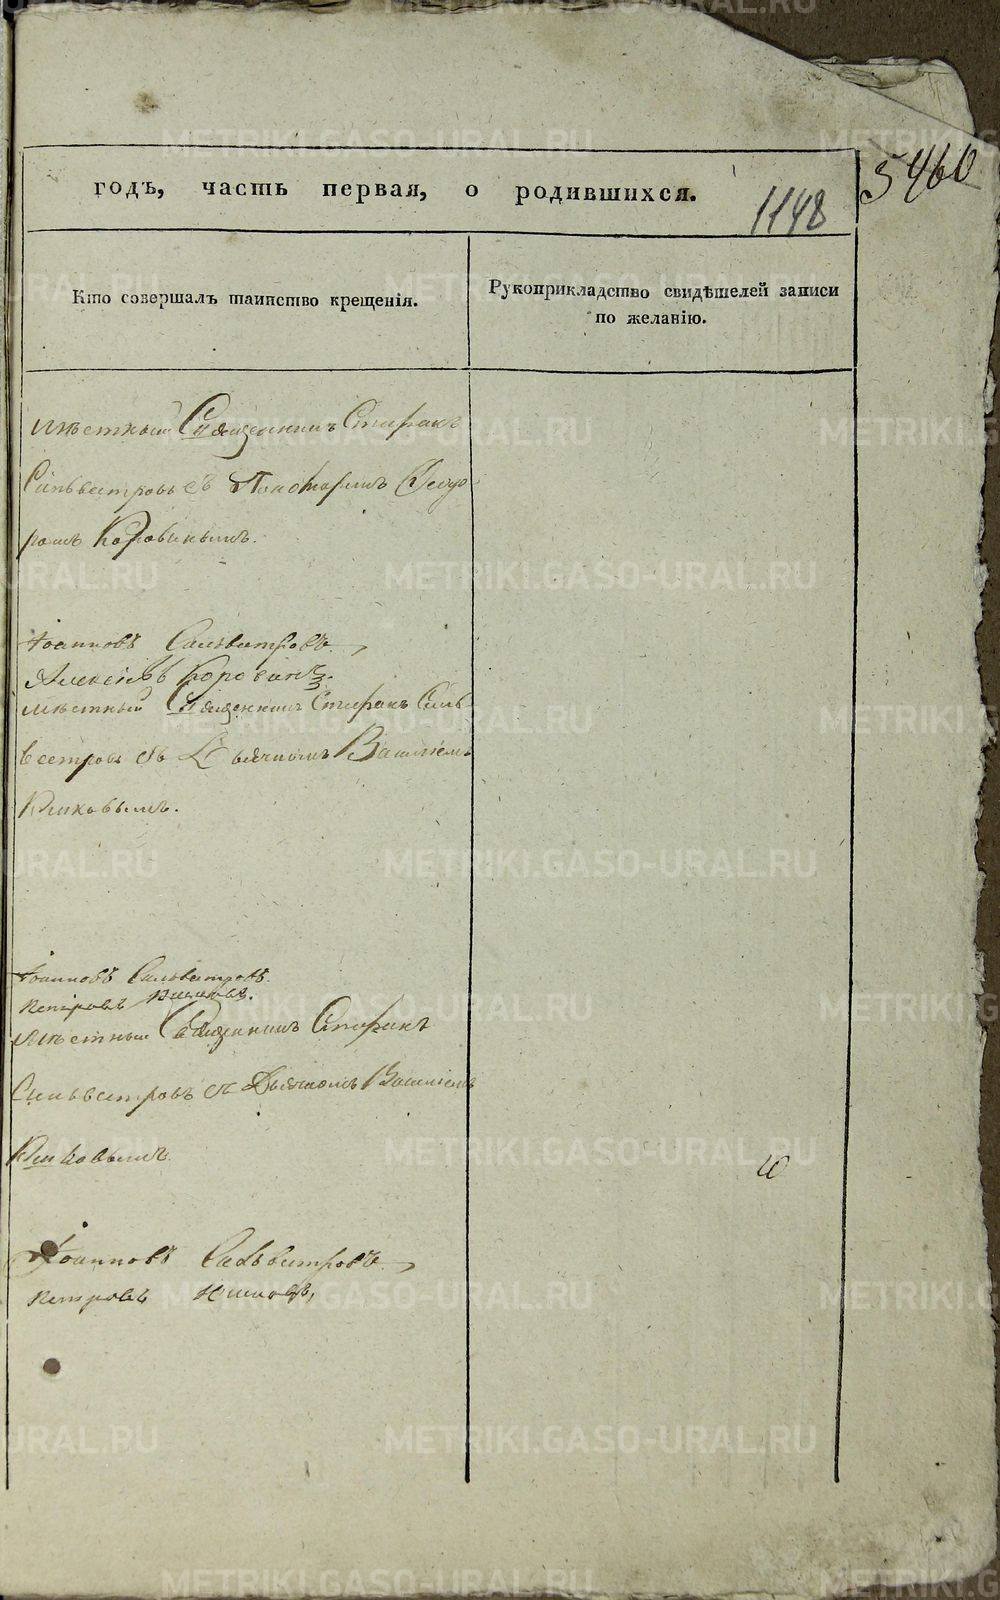 годъ, часть первая, о родившихся.
1148
5460
Кто совершалъ таинство крещенія.
Рукоприкладство свидѣтелей записи
по желанію.
мѣстный Священникъ
Сильвестровъ съ Пономаремъ Ѳедо
ромъ Коровинымъ.
Іоанновъ Сильвестровъ,
Алексѣевъ Коровинъ.
мѣстный Священникъ Силь
вестровъ съ Дьячкомъ Василіемъ
Іоанновъ Сильвестровъ.
Петровъ
мѣстный Священникъ
Сильвестровъ съ Дьячкомъ Василіемъ
Іоанновъ Сильвестровъ,
Петровъ
METRIKI.GASO-URAL.RU